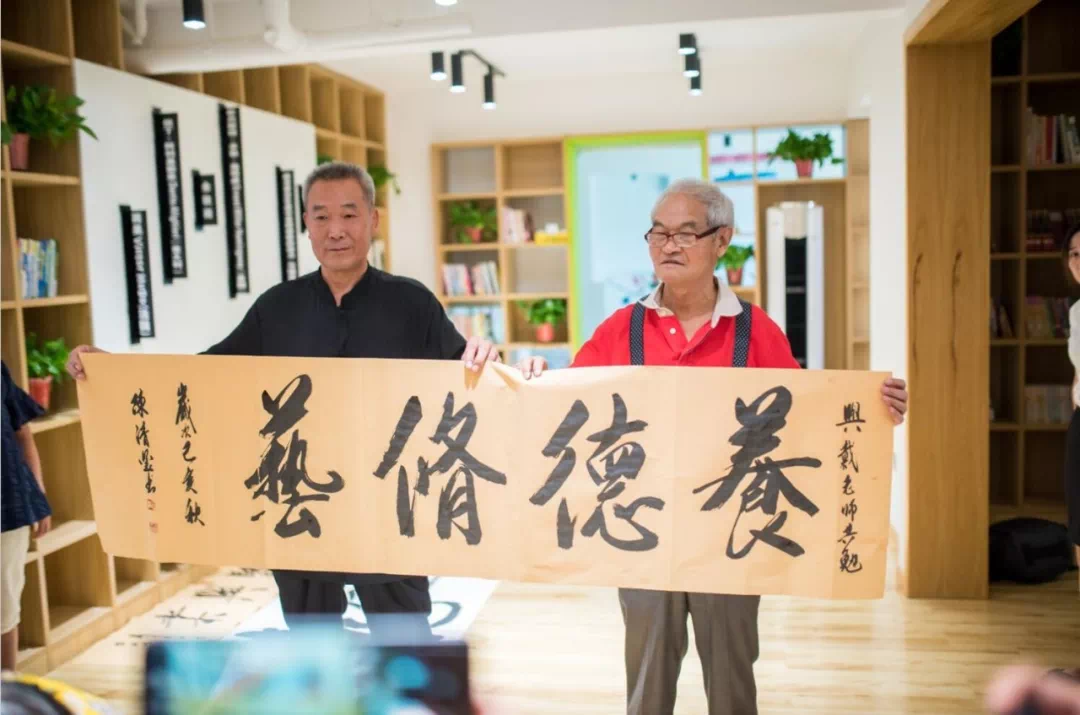 與戴老師共勉
養德脩藝
歲次己亥秋
陳清書